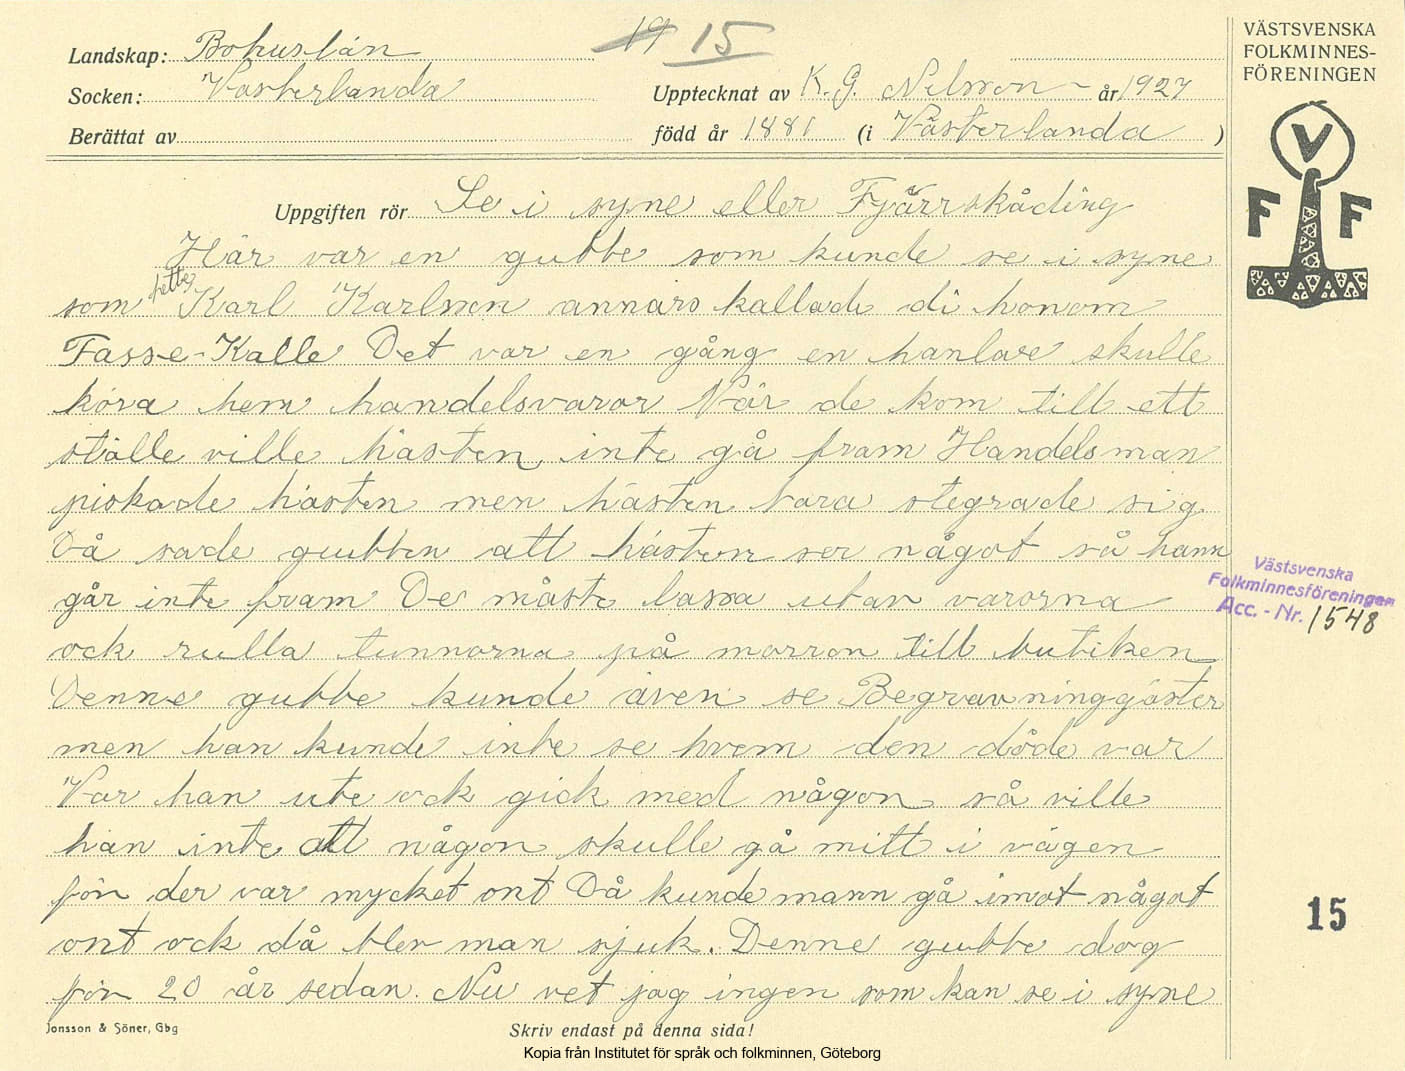 19 15
Landskap: Bohuslän
Socken: Västerlanda
Berättat av
Upptecknat av K. G. Nelsson år 1927
född år 1881 (i Västerlanda )
VÄSTSVENSKA
FOLKMINNES-
FÖRENINGEN
V
F F
Uppgiften rör Se i syne eller Fjärrskåding
Här var en gubbe som kunde se i syne
som hette Karl Karlsson annars kallade di honom
Fasse-Kalle Det var en gång en hanlare skulle
köra hem handelsvaror När de kom till ett
ställe ville hästen inte gå fram Handelsman
piskade hästen men hästen bara stegrade sig
Då sade gubben att hästen ser något så hann
går inte fram De måste lassa utav varorna
ock rulla tunnorna på morron till butiken
Denne gubbe kunde även se Begravninggäster
men han kunde inte se hvem den döde var
Var han ute ock gick med någon så ville
han inte att någon skulle gå mitt i vägen
för der var mycket ont Då kunde mann gå imot något
ont ock då blev man sjuk. Denne gubbe dog
för 20 år sedan. Nu vet jag ingen som kan se i syne
Västsvenska
Folkminnesföreningen
Acc. - Nr. 1548
15
Jonsson & Söner, Gbg
Skriv endast på denna sida!
Kopia från Institutet för språk och folkminnen, Göteborg